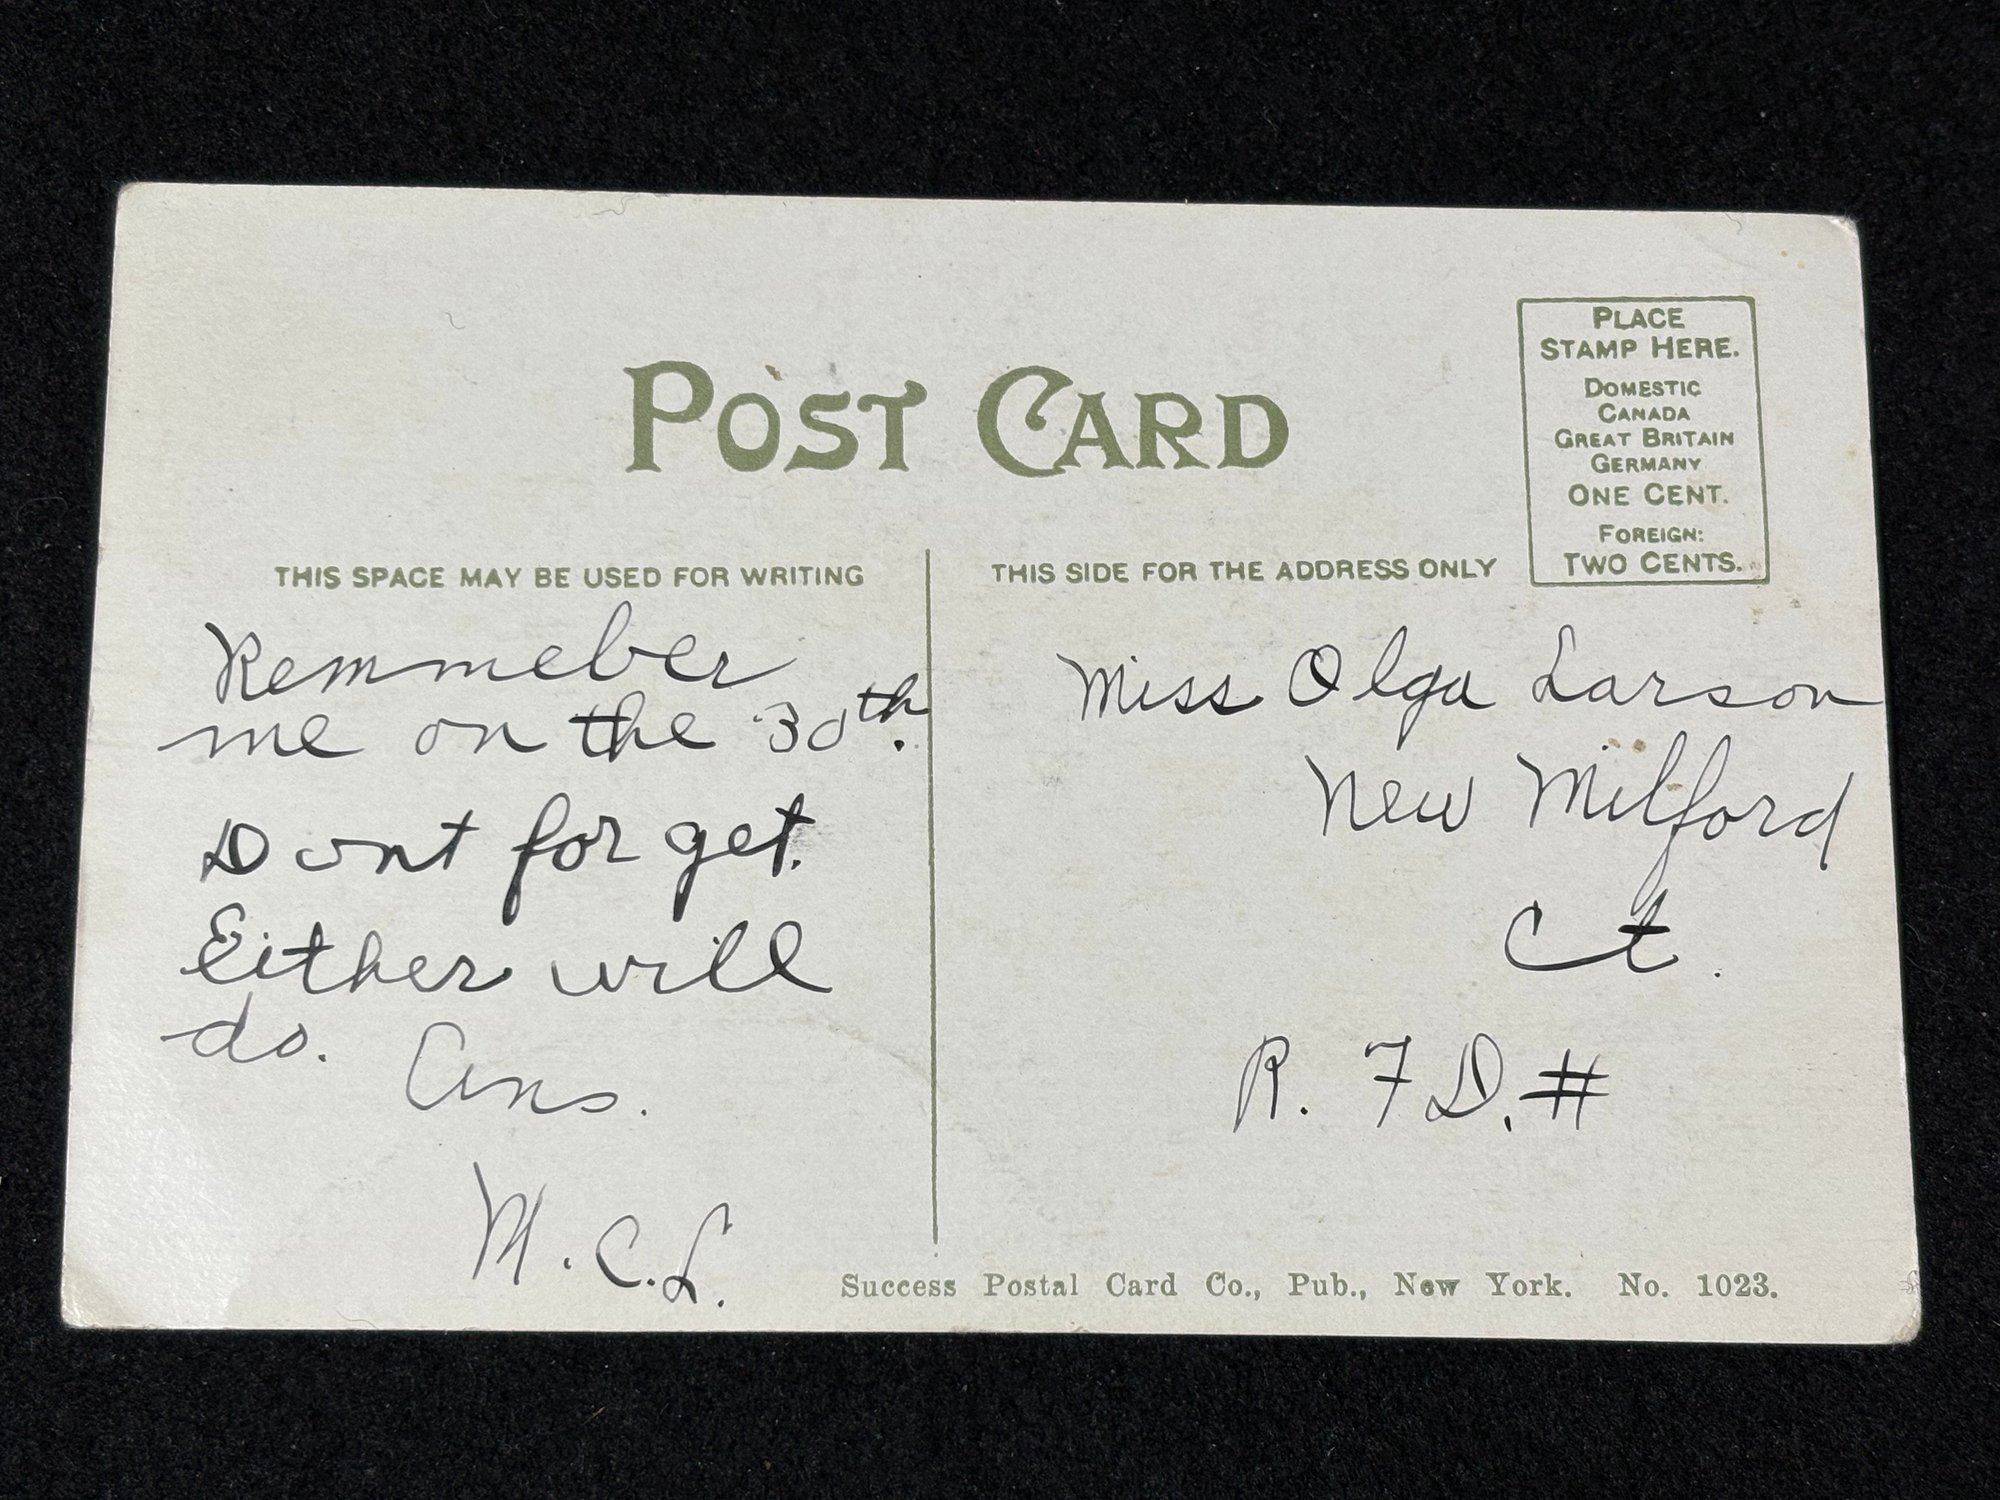 POST CARD
PLACE
STAMP HERE.
DOMESTIC
CANADA
GREAT BRITAIN
GERMANY
ONE CENT.
FOREIGN:
TWO CENTS.
THIS SPACE MAY BE USED FOR WRITING
THIS SIDE FOR THE ADDRESS ONLY
Remmeber
me on the 30th.
Dont forget.
Either will
do. Ans.
M. C. L.
Miss Olga Larson
New Milford
Ct.
R. F D. #
Success Postal Card Co., Pub., New York. No. 1023.